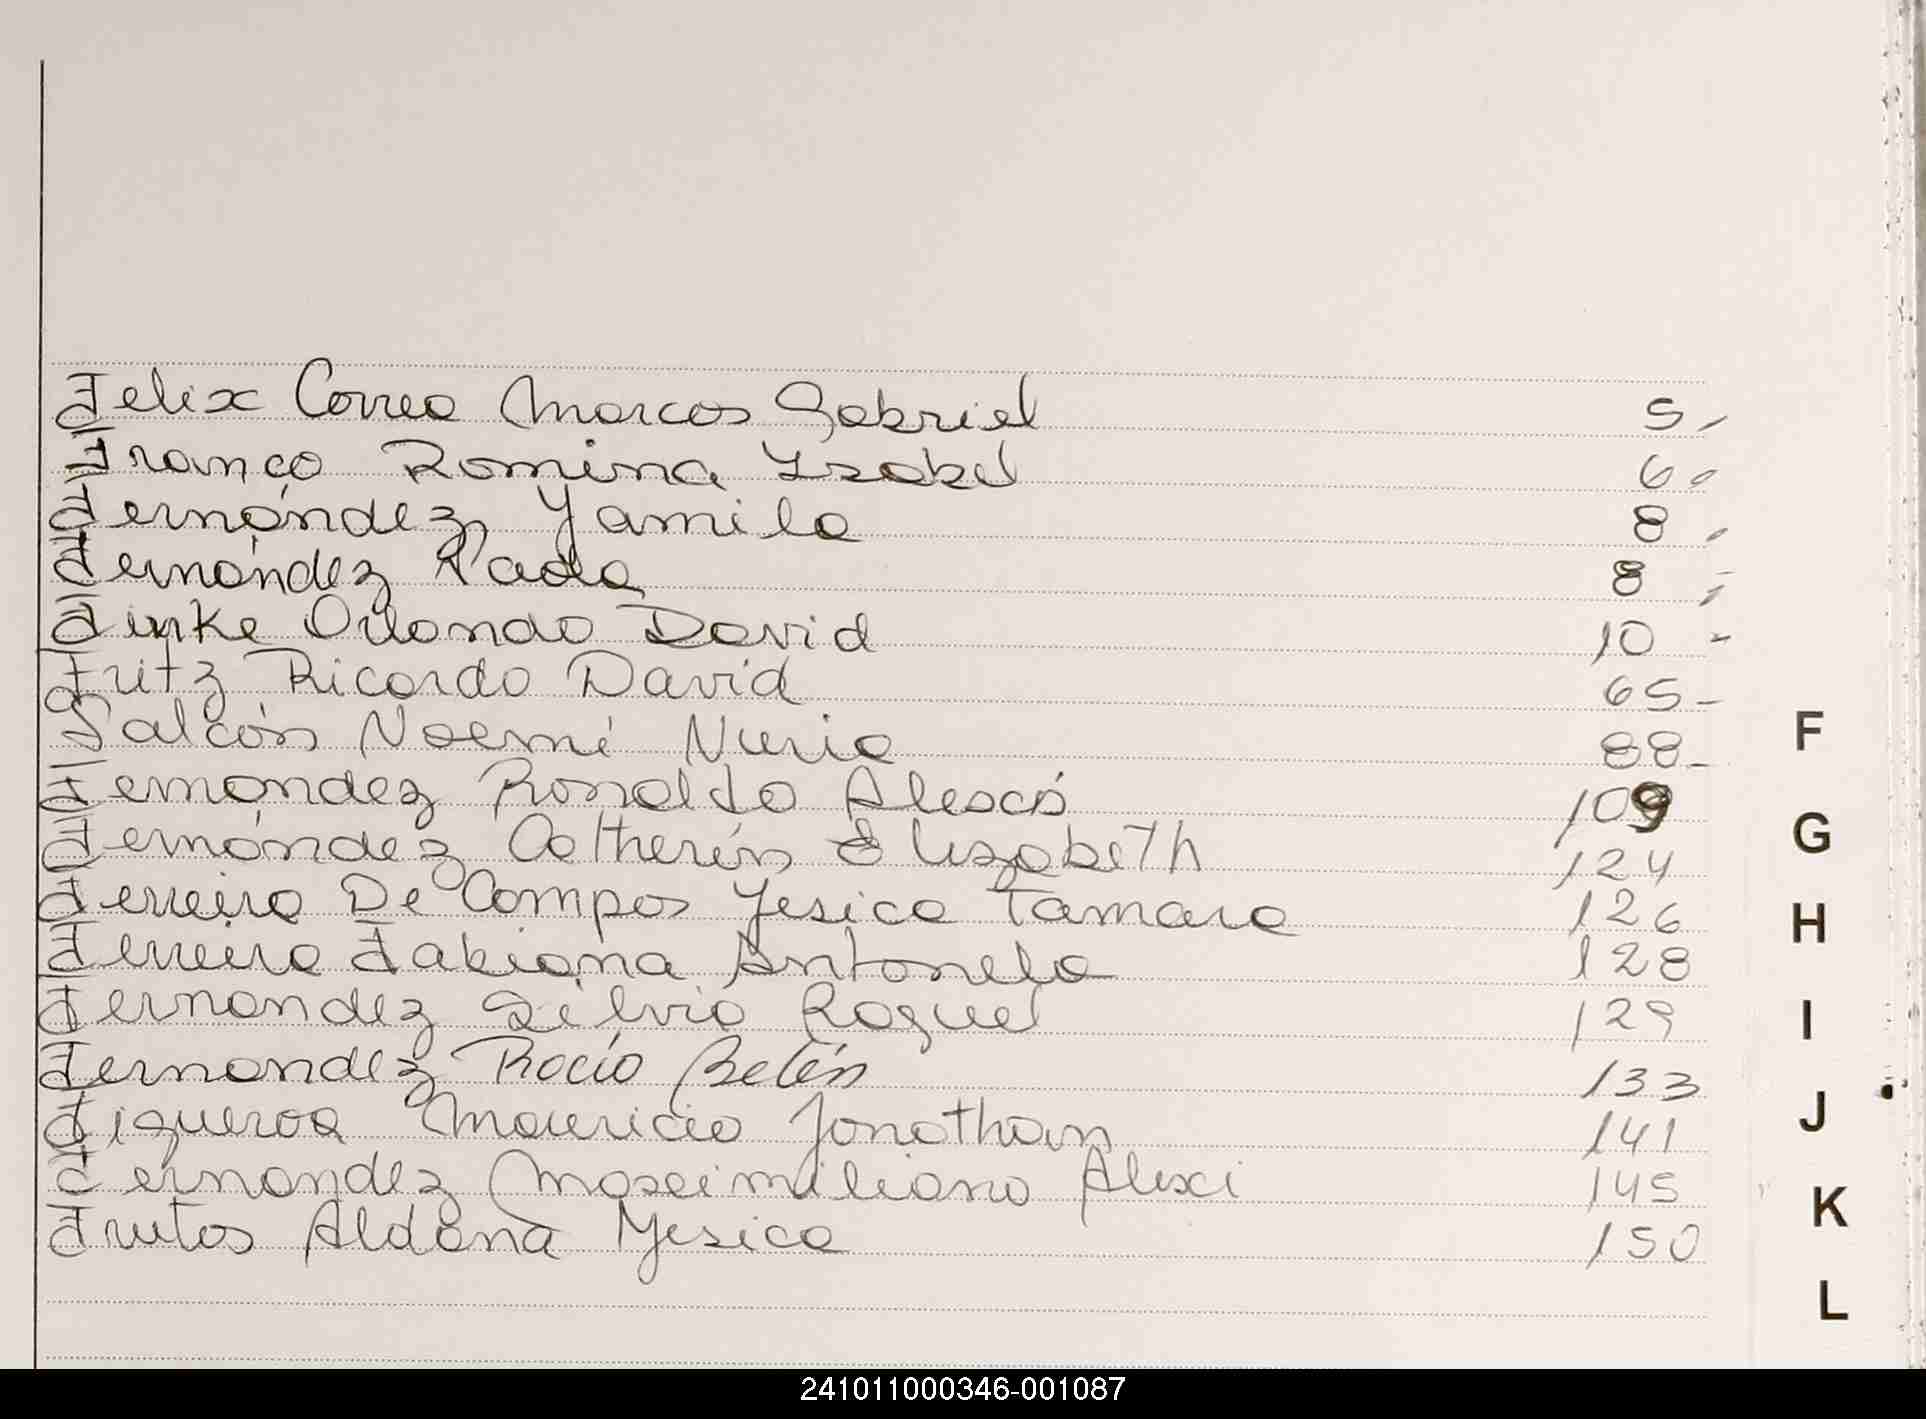 Felix Correa Marcos Gabriel 5
Franco Romina Ysabel 6
Fernández Yamila 8
Fernández Paola 8
Finke Orlando David 10
Fritz Ricardo David 65
Falcón Noemí Nuria 88
Fernandez Ronaldo Alexis 109
Fernández Catherin Elizabeth 124
Ferreira De Campos Yesica Tamara 126
Ferreira Fabiana Antonela 128
Fernandez Silvia Raquel 129
Fernandez Rocío Belén 133
Figueroa Mauricio Jonathan 141
Fernandez Maximiliano Alexi 145
Frutos Aldana Yesica 150
F
G
H
I
J
K
L
241011000346-001087